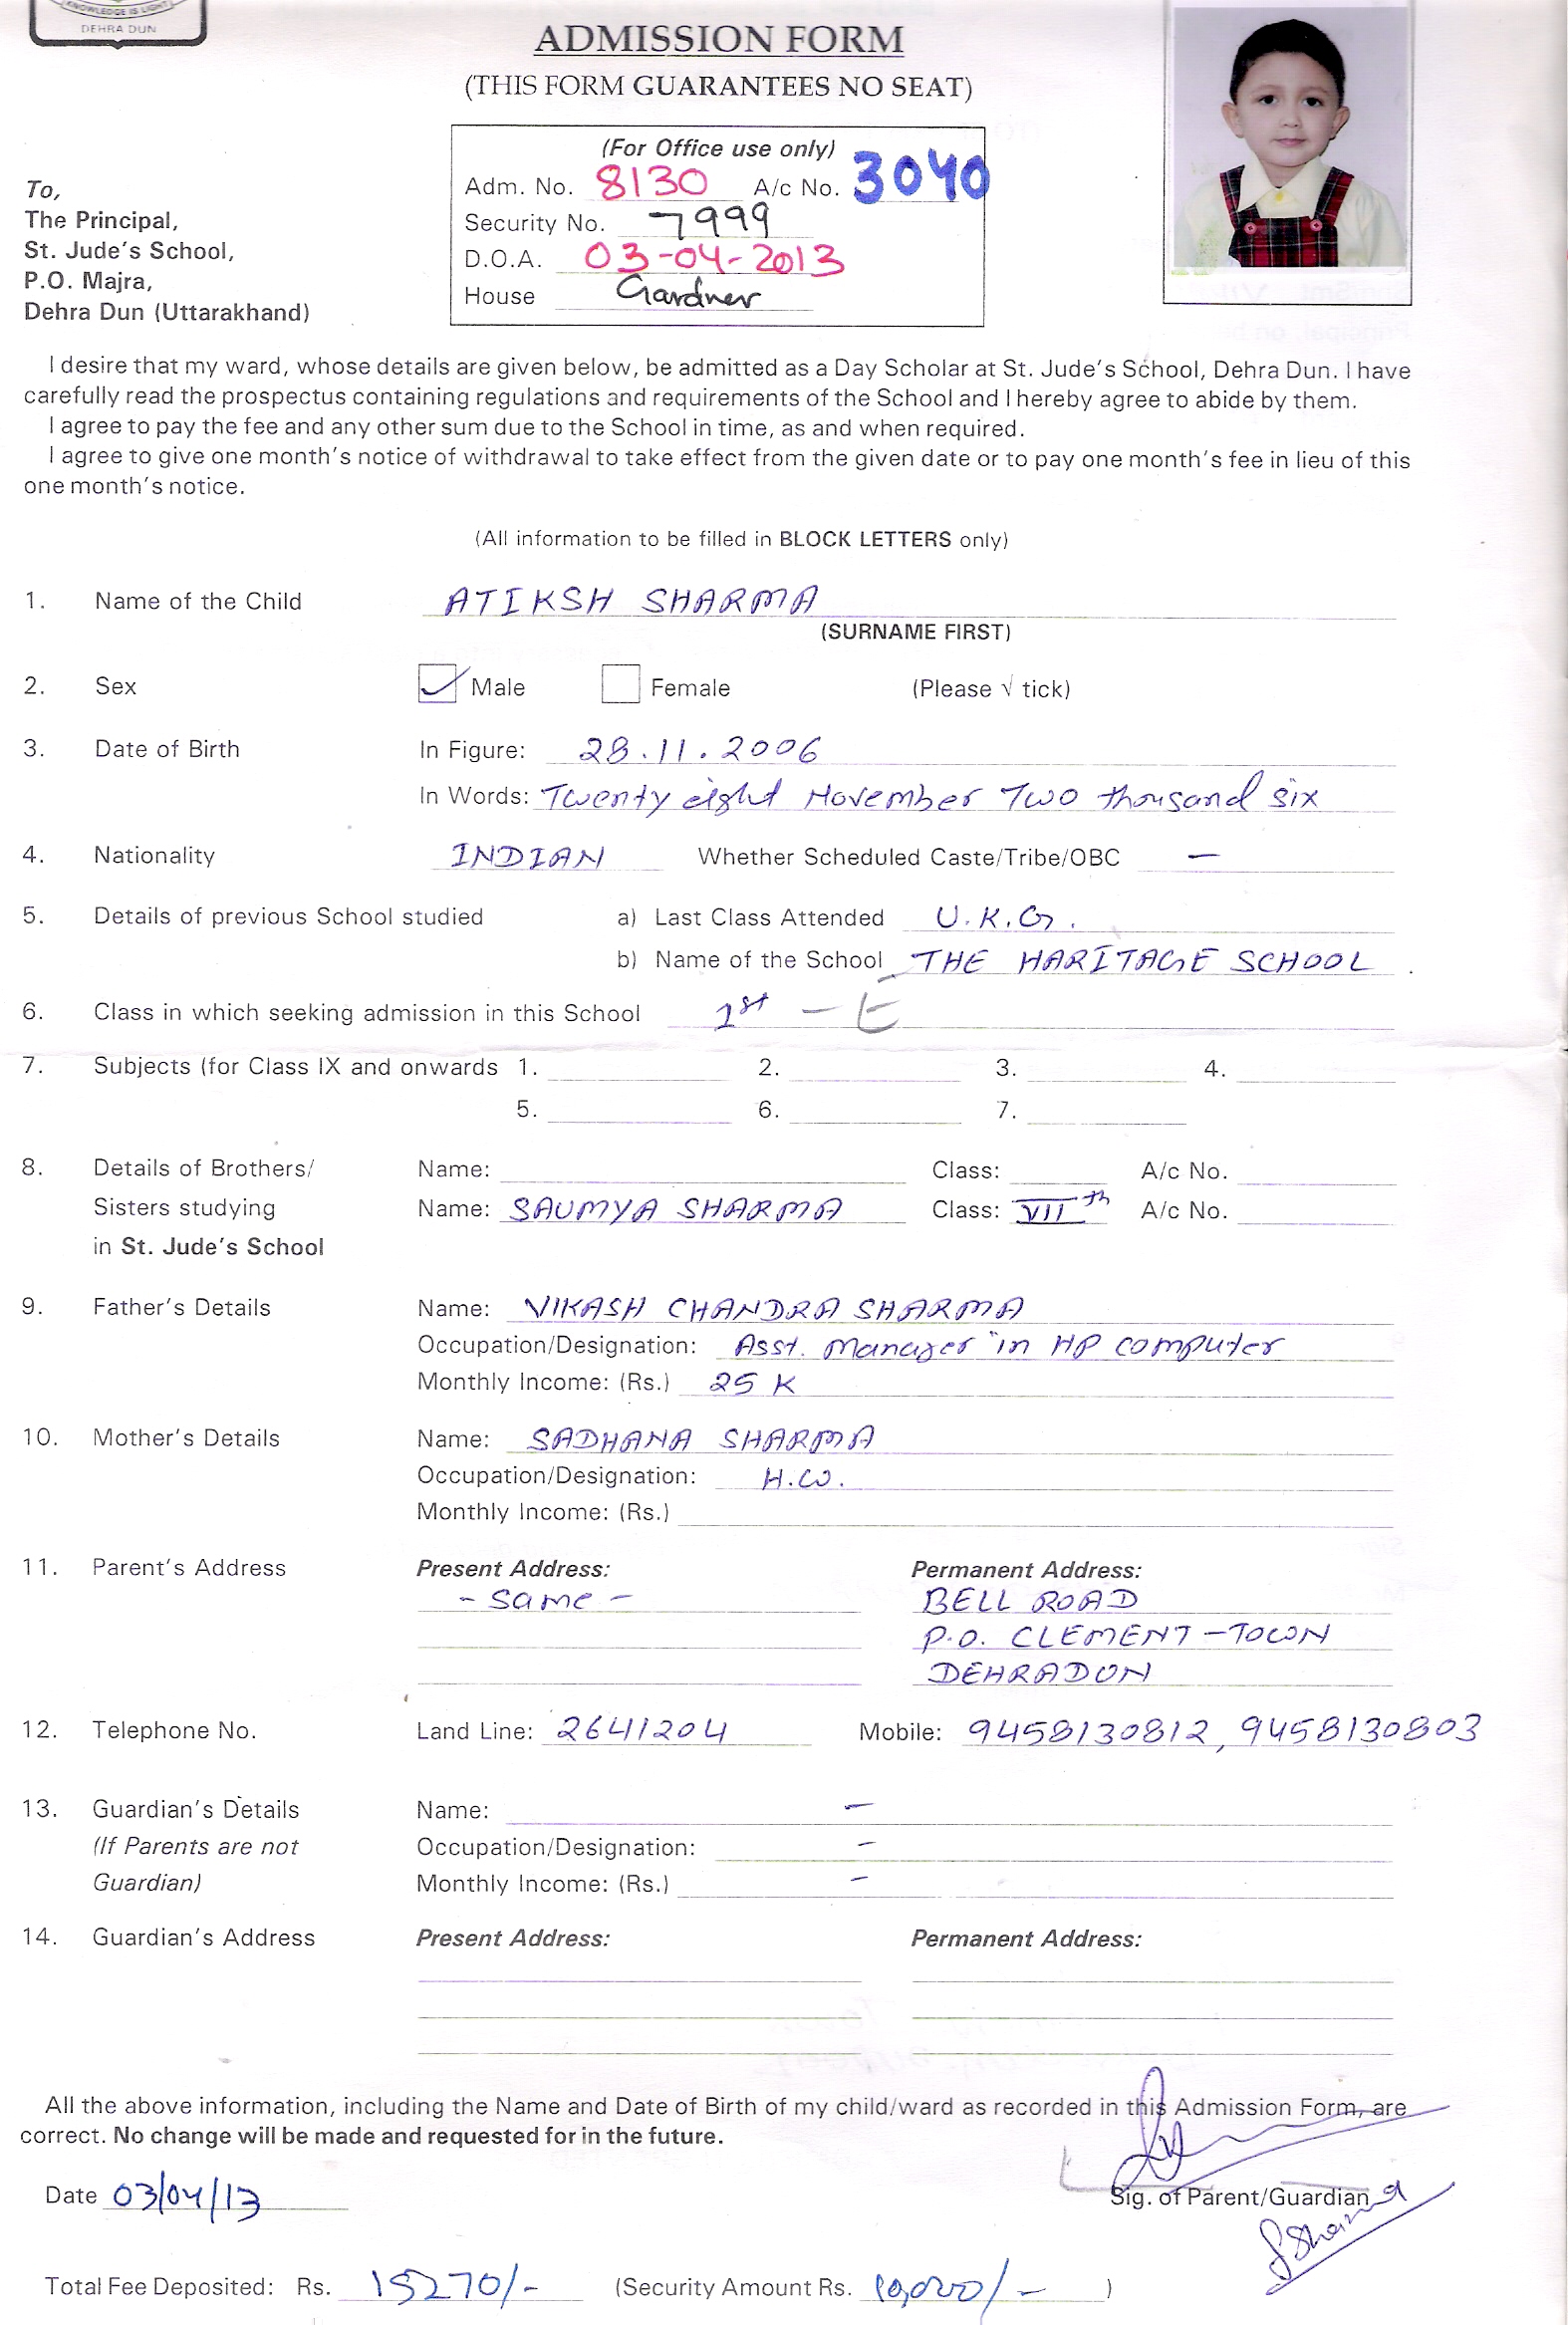 KNOWLEDGE IS LIGHT
DEHRA DUN
ADMISSION FORM
(THIS FORM GUARANTEES NO SEAT)
(For Office use only)
Adm. No. 8130 A/c No. 3040
Security No. 7999
D.O.A. 03-04-2013
House Gardner
To,
The Principal,
St. Jude's School,
P.O. Majra,
Dehra Dun (Uttarakhand)
I desire that my ward, whose details are given below, be admitted as a Day Scholar at St. Jude's School, Dehra Dun. I have
carefully read the prospectus containing regulations and requirements of the School and I hereby agree to abide by them.
I agree to pay the fee and any other sum due to the School in time, as and when required.
I agree to give one month's notice of withdrawal to take effect from the given date or to pay one month's fee in lieu of this
one month's notice.
(All information to be filled in BLOCK LETTERS only)
1. Name of the Child ATIKSH SHARMA
(SURNAME FIRST)
2. Sex ✓ Male Female (Please √ tick)
3. Date of Birth In Figure: 28.11.2006
In Words: Twenty eight November Two thousand six
4. Nationality INDIAN Whether Scheduled Caste/Tribe/OBC —
5. Details of previous School studied a) Last Class Attended U.K.G.
b) Name of the School THE HARITAGE SCHOOL
6. Class in which seeking admission in this School 1st - E
7. Subjects (for Class IX and onwards 1. 2. 3. 4.
5. 6. 7.
8. Details of Brothers/ Name: Class: A/c No.
Sisters studying Name: SAUMYA SHARMA Class: VIIth A/c No.
in St. Jude's School
9. Father's Details Name: VIKASH CHANDRA SHARMA
Occupation/Designation: Asst. Manager in HP computer
Monthly Income: (Rs.) 25 K
10. Mother's Details Name: SADHANA SHARMA
Occupation/Designation: H.W.
Monthly Income: (Rs.)
11. Parent's Address Present Address: Permanent Address:
- Same - BELL ROAD
P.O. CLEMENT-TOWN
DEHRADUN
12. Telephone No. Land Line: 2641204 Mobile: 9458130812, 9458130803
13. Guardian's Details Name: —
(If Parents are not Occupation/Designation: —
Guardian) Monthly Income: (Rs.) —
14. Guardian's Address Present Address: Permanent Address:
All the above information, including the Name and Date of Birth of my child/ward as recorded in this Admission Form, are
correct. No change will be made and requested for in the future.
Date 03/04/13
Sig. of Parent/Guardian
SSharma
Total Fee Deposited: Rs. 15270/- (Security Amount Rs. 10,000/- )